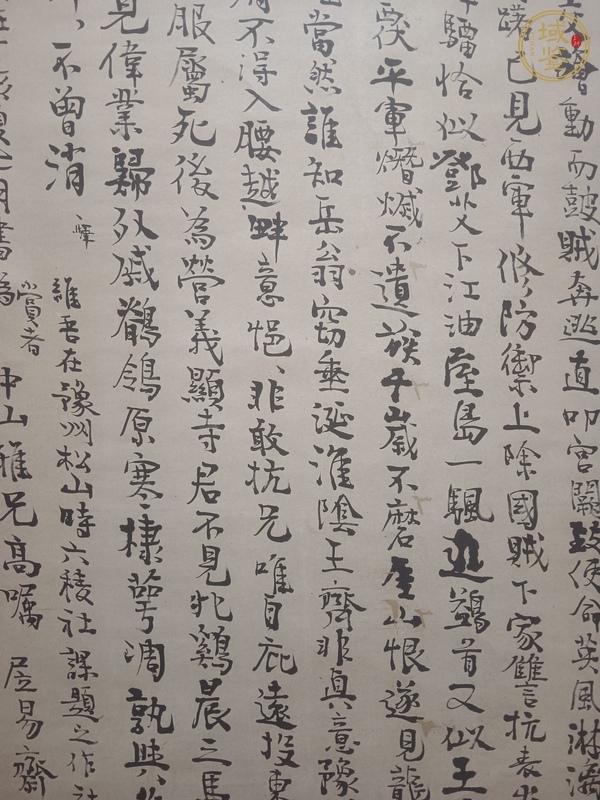 動而鼓賊奔逃直叩宮闕鼓使命英風淋漓
蹊已見西軍修防禦上除國賊下家讎言抗表
驑恰似鄧艾下江油屋島一颿進鷁首又似王
平軍熸烕不遺蔟千歲不磨屋山恨遂見龍
當然誰知岳翁窃垂涎淮陰王齊非真意豫
不得入腰越畔意悒、非敢抗兄唯自庇遠投東
服屬死後為營義顯寺君不見牝鷄晨三馬
見偉業歸外戚鶺鴒原寒、棣萼凋孰與
不曾消
羅吾在豫州松山時六稜社課題之作社
賞者
中山雅兄高嘱 居易齋
域鉴